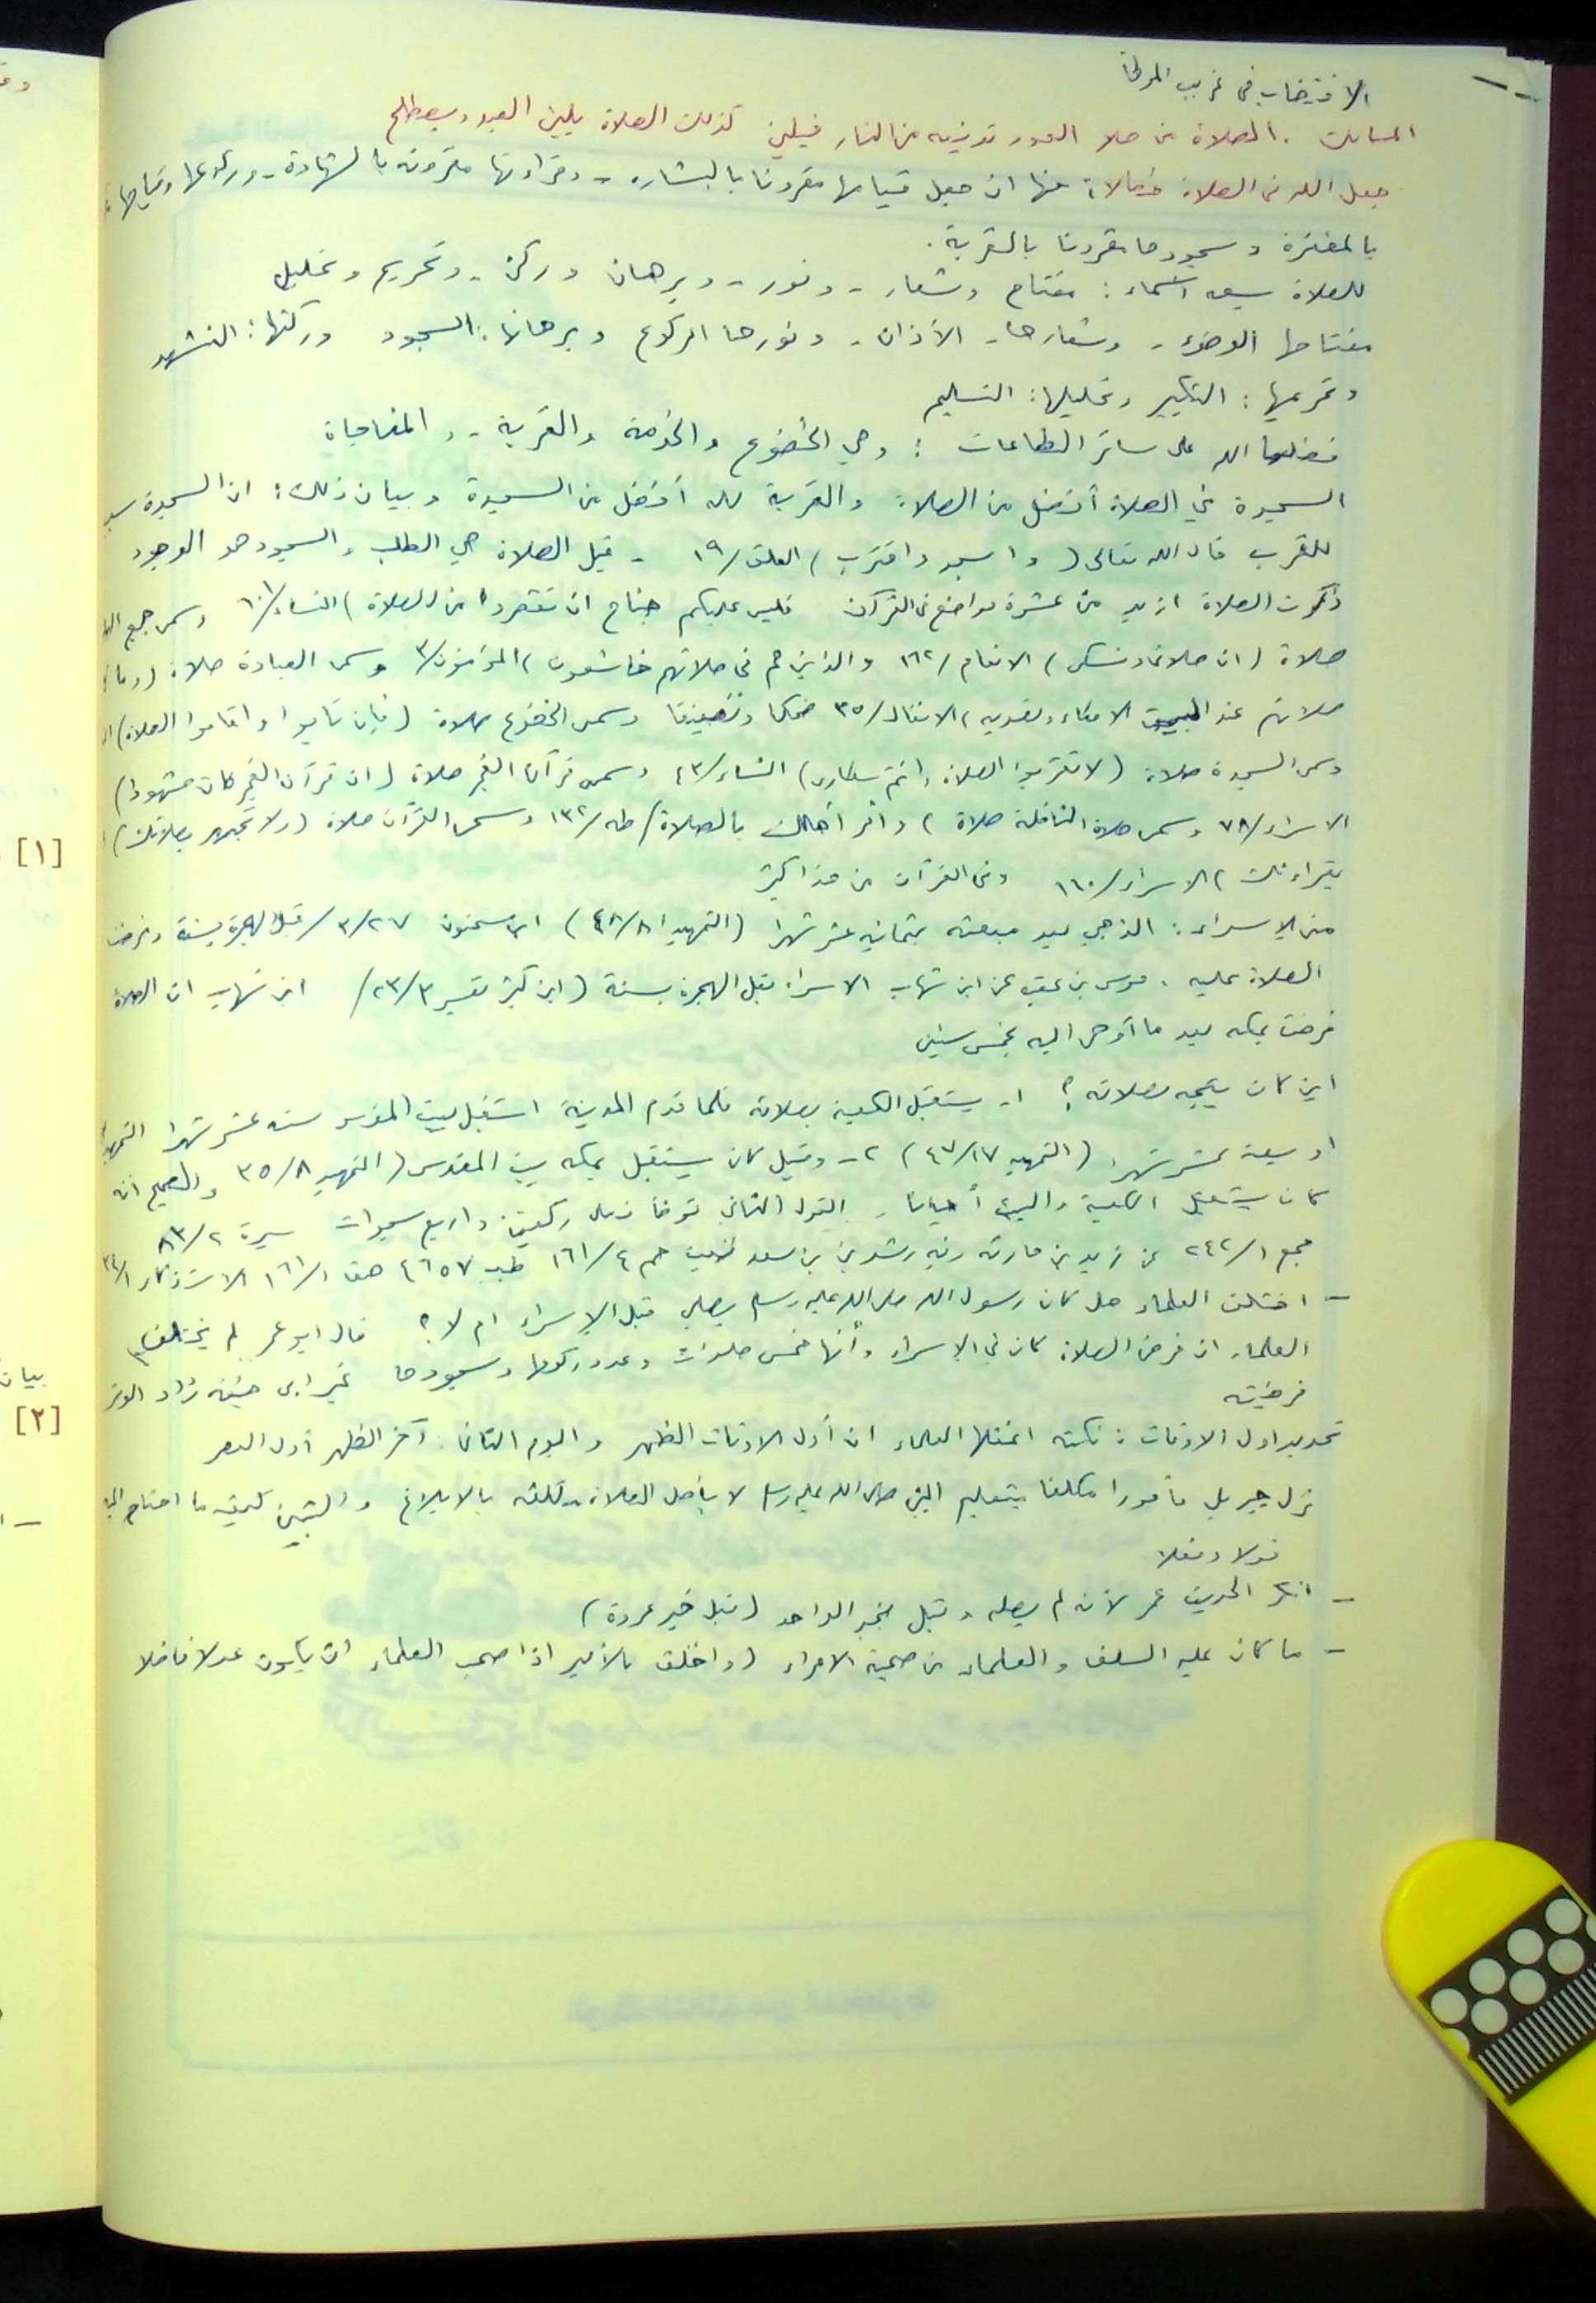 الاقتضاب في غريب الموطأ
المسالك . الصلاة من صلا العود تدنيه من النار فيلين كذلك الصلاة يلين العبد ويصطلح
جعل الله في الصلاة خصالا: منها ان جعل قيامها مقرونا بالبشاره - وقراءتها مقرونه بالشهادة - وركوعها وقيامها
بالمغفرة وسجودها مقرونا بالقربة .
للصلاة سبعه اسماء : مفتاح وشعار - ونور - وبرهان وركن - وتحريم وتحليل
مفتاحها الوضوء - وشعارها - الأذان - ونورها الركوع وبرهانها : السجود وركنها : التشهد
وتحريمها : التكبير وتحليلها : التسليم
فضلها الله على سائر الطاعات : وهي الخضوع والخدمة والقربة - والمناجاة
السجدة في الصلاة أفضل من الصلاة والقربة لله أفضل من السجدة وبيان ذلك : ان السجدة
للقرب قال الله تعالى ( واسجد واقترب ) العلق /١٩ - قيل الصلاة هي الطلب والسجود هو الوجود
ذكرت الصلاة ازيد من عشرة مواضع في القرآن فليس عليكم جناح ان تقصروا من الصلاة ) النساء/١٠١ وسمى جميع
صلاة ( ان صلاتي ونسكي ) الانعام /١٦٢ والذين هم في صلاتهم خاشعون ) المؤمنون/٢ وسمى العبادة صلاة ( وما
صلاتهم عند البيت الا مكاء وتصديه ) الانفال/٣٥ وسمى الخضوع صلاة ( فإن تابوا واقاموا الصلاة )
وسمى السجدة صلاة ( لا تقربوا الصلاة وانتم سكارى ) النساء/٤٣ وسمى قرآن الفجر صلاة ( ان قرآن الفجر كان مشهودا )
الاسراء/٧٨ وسمى صلاة النافلة صلاة ) وأمر أهلك بالصلاة / طه /١٣٢ وسمى القرآن صلاة ( ولا تجهر بصلاتك )
بقراءتك ) الاسراء/١١٠ وفي القرآن من هذا كثير
متى الإسراء : الذهبي بعد مبعثه بثمانيه عشر شهرا ( التمهيد ٤٨/٨ ) ابن سحنون ٣/٢٧ قبل الهجرة بسنة وفرضت
الصلاة عليه . موسى بن عقبه عن ابن شهاب الاسراء قبل الهجرة بسنة ( ابن كثير تفسير ٢٣/٣ / ابن شهاب ان الصلاة
فرضت بمكه بعد ما أوحى اليه بخمس سنين
اين كان يتجه بصلاته ؟ ١- يستقبل الكعبة بصلاته فلما قدم المدينة استقبل بيت المقدس سته عشر شهرا
او سبعة عشر شهر ( التمهيد ٤٧/١٧ ) ٢- وقيل كان يستقبل بمكه بيت المقدس ( التمهيد ٣٥/٨ والصحيح انه
كان يستقبل الكعبة والبيت أحيانا . القول الثاني توضأ وصلى ركعتين واربع سجدات سيرة ٨٣/٢
مجمع ٢٤٢/١ عن زيد بن حارثه وفيه رشدين بن سعد ضعيف حم ١٦١/٤ طب ٤٦٥٧ هق ١٦١/١ الاستذكار
- اختلف العلماء هل كان رسول الله صلى الله عليه وسلم يصلي قبل الإسراء ام لا ؟ قال ابو عمر لم يختلف
العلماء ان فرض الصلاة كان في الإسراء وأنها خمس صلوات وعدد ركوعها وسجودها غير ابي حنيفه زاد الوتر
فرضيته
تحديد اول الاوقات : نكته اغفلها العلماء ان أول الاوقات الظهر واليوم الثاني . آخر الظهر أول العصر
نزل جبريل مأمورا مكلفا بتعليم النبي صلى الله عليه وسلم لا بأصل الصلاة - تكلفه بالابلاغ والتبيين كيفيه ما احتاج اليه
قولا وفعلا
- انكر الحديث عمر لأنه لم يصله وقبل بخبر الواحد ( قبل خبر عروة )
- ما كان عليه السلف والعلماء من صحبة الامراء ( واخلق بالأمير اذا صحب العلماء ان يكون عدلا فاضلا
[١]
بيان
[٢]